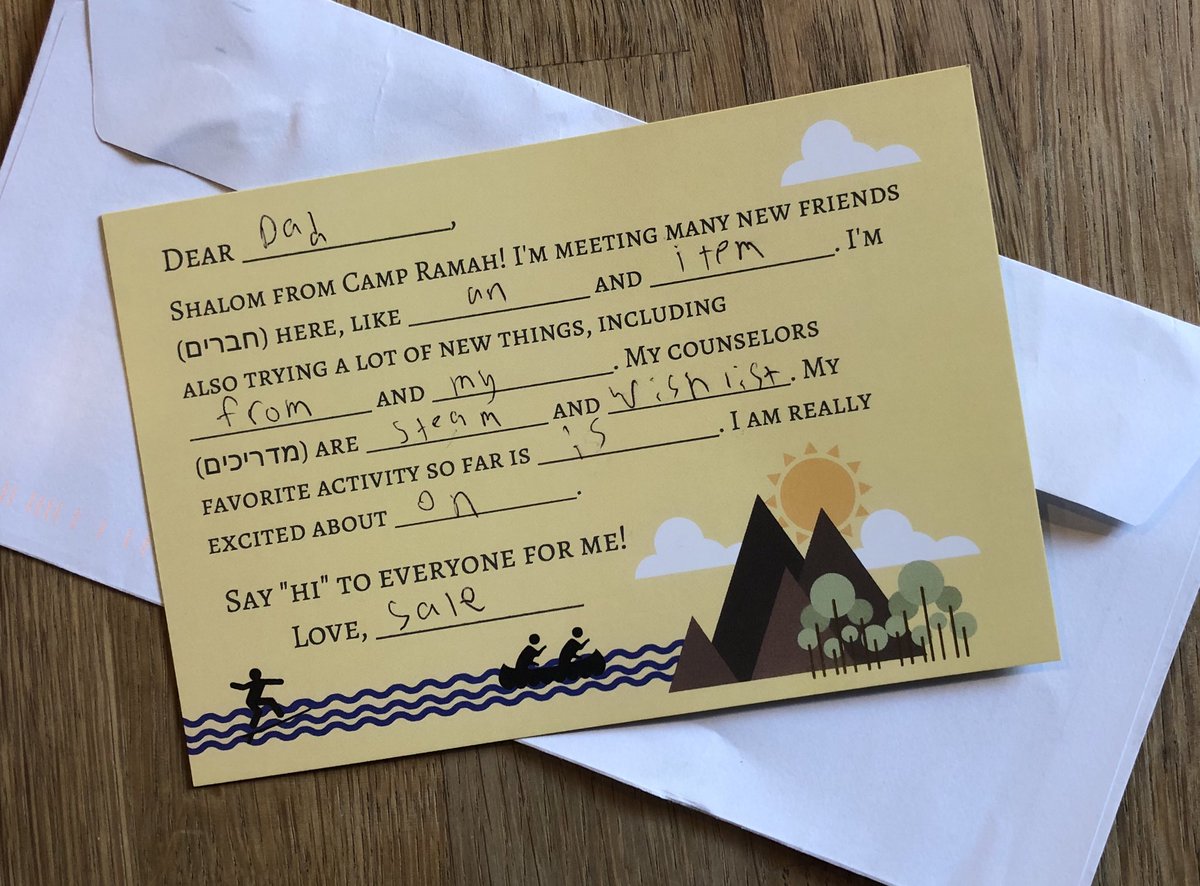 DEAR Dad,
SHALOM FROM CAMP RAMAH! I'M MEETING MANY NEW FRIENDS
(חברים) HERE, LIKE an AND item. I'M
ALSO TRYING A LOT OF NEW THINGS, INCLUDING
from AND my. MY COUNSELORS
(מדריכים) ARE steam AND wishlist. MY
FAVORITE ACTIVITY SO FAR IS is. I AM REALLY
EXCITED ABOUT on.
SAY "HI" TO EVERYONE FOR ME!
LOVE, sale